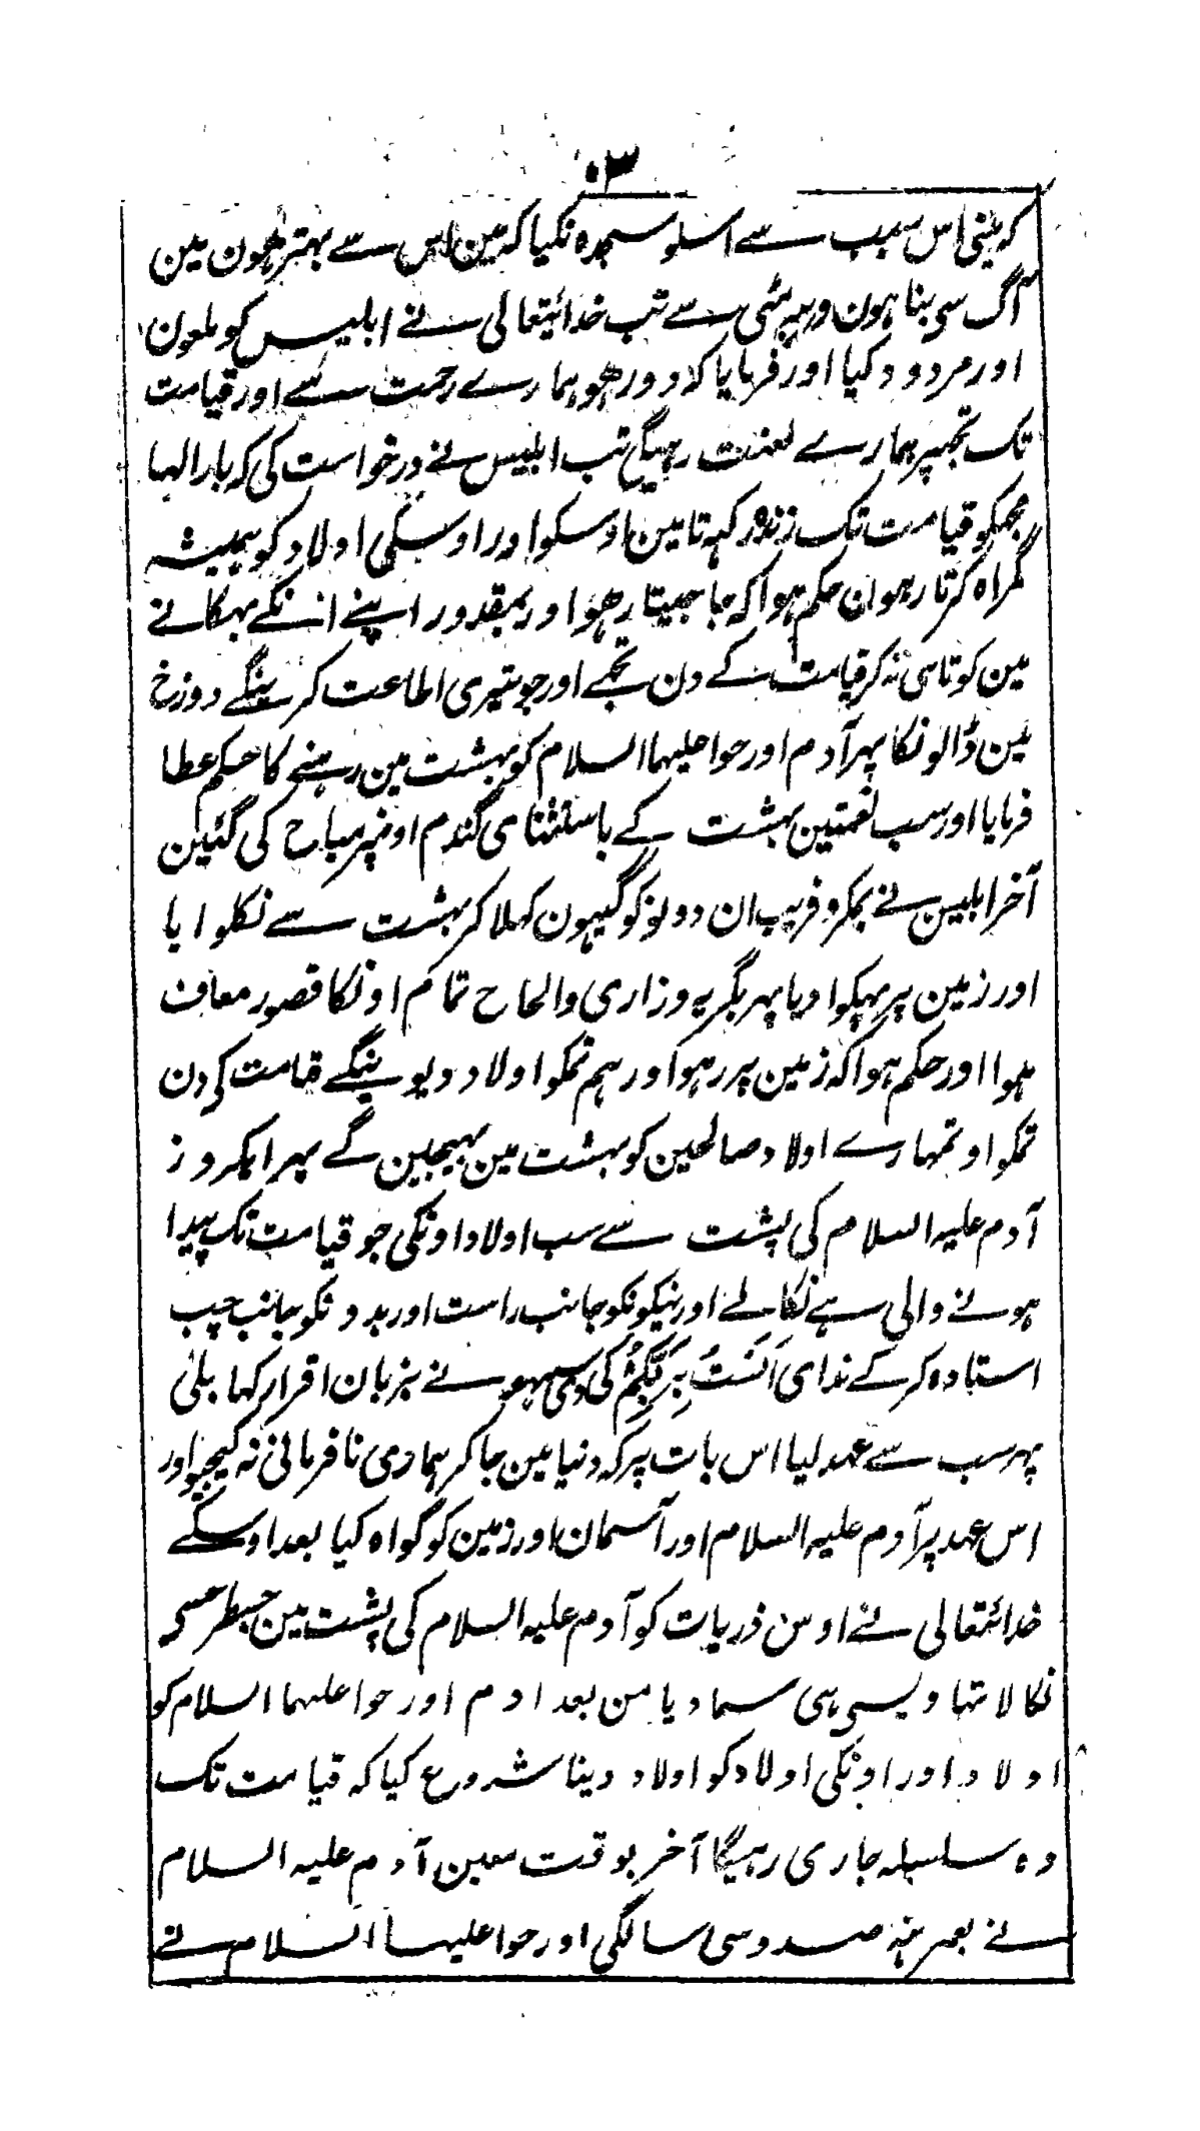 ۳۰
کہ مینی اس سبب سے اسکو سجدہ نکیا کہ مین اس سے بہتر ہون مین
آگ سی بنا ہون وہ مٹی سے تب خدائیتعالی نے ابلیس کو ملعون
اور مردود کیا اور فرمایا کہ دور ہو ہمارے رحمت سے اور قیامت
تک تجہپر ہمارے لعنت رہیگی تب ابلیس نے درخواست کی کہ بار الہا
مجہکو قیامت تک زندہ رکہہ تا مین اوسکو اور اوسکی اولاد کو ہمیشہ
گمراہ کرتا رہون حکم ہوا کہ جا جیتا رہو اور بمقدور اپنے انکے بہکانے
مین کوتاہی نہ کر قیامت کے دن تجہے اور جو تیری اطاعت کرینگے دوزخ
مین ڈالونگا پہر آدم اور حوا علیہما السلام کو بہشت مین رہنے کا حکم عطا
فرمایا اور سب نعمتین بہشت کے باستثنای گندم اونپر مباح کی گئین
آخر ابلیس نے بمکر و فریب ان دونو کو گیہون کہلا کر بہشت سے نکلوایا
اور زمین پر پہکوا دیا پہر بگریہ و زاری و الحاح تمام اونکا قصور معاف
ہوا اور حکم ہوا کہ زمین پر رہو اور ہم تمکو اولاد دیوینگے قیامت کی دن
تمکو او تمہارے اولاد صالحین کو بہشت مین بہیجین گے پہر ایکروز
آدم علیہ السلام کی پشت سے سب اولاد اونکی جو قیامت تک پیدا
ہونے والی ہے نکالے اور نیکونکو جانب راست اور بدونکو بجانب چپ
استادہ کر کے ندای اَلَسْتُ بِرَبِّکُمْ کی دی سبہو نے بزبان اقرار کہا بلی
پہر سب سے عہد لیا اس بات پر کہ دنیا مین جا کر ہماری نافرمانی نہ کیجیو اور
اس عہد پر آدم علیہ السلام اور آسمان اور زمین کو گواہ کیا بعد اوسکے
خدائیتعالی نے اوس ذریات کو آدم علیہ السلام کی پشت مین جسطرحسی
نکالا تہا ویسی ہی سما دیا من بعد ادم اور حوا علیہما السلام کو
اولاد اور اونکی اولاد کو اولاد دینا شروع کیا کہ قیامت تک
وہ سلسلہ جاری رہیگا آخر بوقت معین آدم علیہ السلام
نے بعمر نہ صد و سی سالگی اور حوا علیہا السلام نے